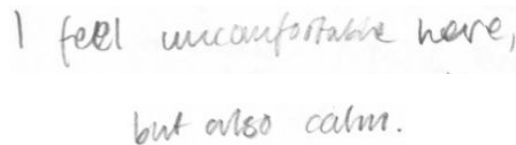 I feel uncomfortable here,
but also calm.